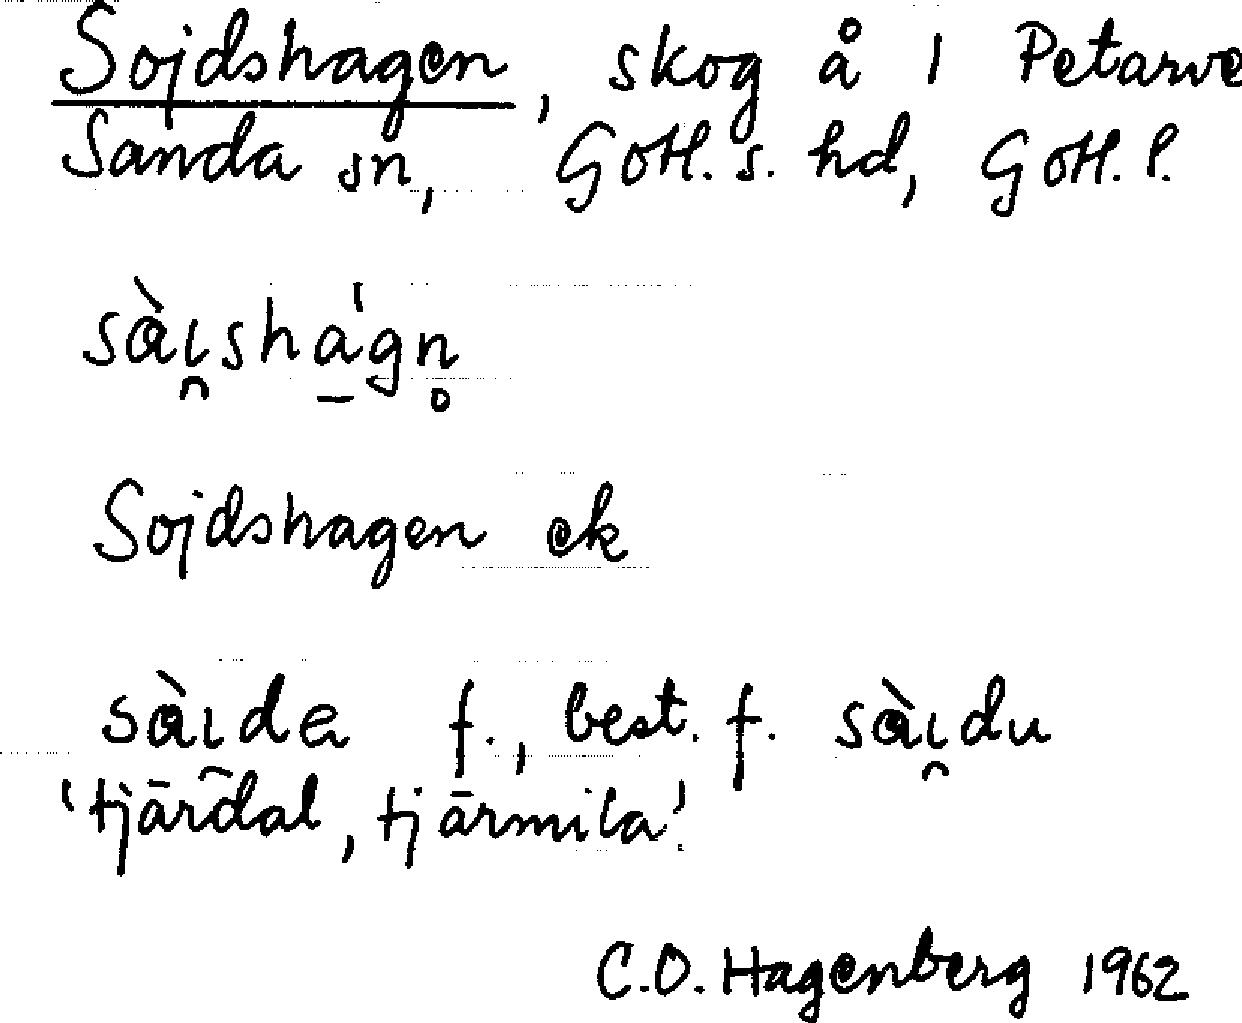 Sojdshagen, skog å 1 Petarve
Sanda sn, Gotl. s. hd, Gotl. l.
sàɩ̯sha̱'gn̥
Sojdshagen ek
sàɩ̯da f., best. f. sàɩ̯du
'tjärdal, tjärmila'.
C.O. Hagenberg 1962